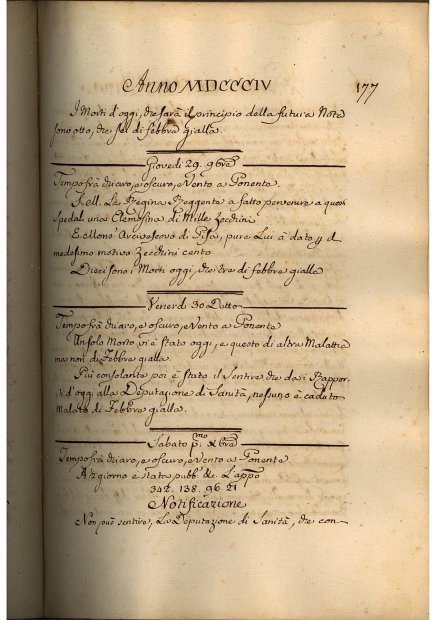 Anno MDCCCIV
177
I Morti d'oggi, che sarà il principio della futura Nota
sono otto, che sei di febbre gialla.
Giovedì 29. 9bre
Tempo frà chiaro, e oscuro, e Vento a Ponente.
S. M. La Regina Reggente a fatto pervenire a quest
Spedal una Elemosina di Mille Zecchini
E Mons.r Arcivescovo di Pisa, pure Lui à dato p. il
medesimo motivo Zecchini cento.
Dieci sono i Morti oggi, che tre di febbre gialla
Venerdì 30 Detto
Tempo frà chiaro, e oscuro, e Vento a Ponente
Un solo Morto vi è stato oggi, e questo di altra Malattia
ma non di Febbre gialla.
Più consolante poi è stato il Sentire che da i Rappor-
ti d'oggi alla Deputazione di Sanità, nessuno è caduto
Malato di Febbre gialla.
Sabato p.mo Xbre
Tempo frà chiaro, e oscuro, e Vento a Ponente.
giorno è stata pubb. La app.o
34z. 138. 96. 21
Notificazione
Non può sentire, La Deputazione di Sanità, che con-